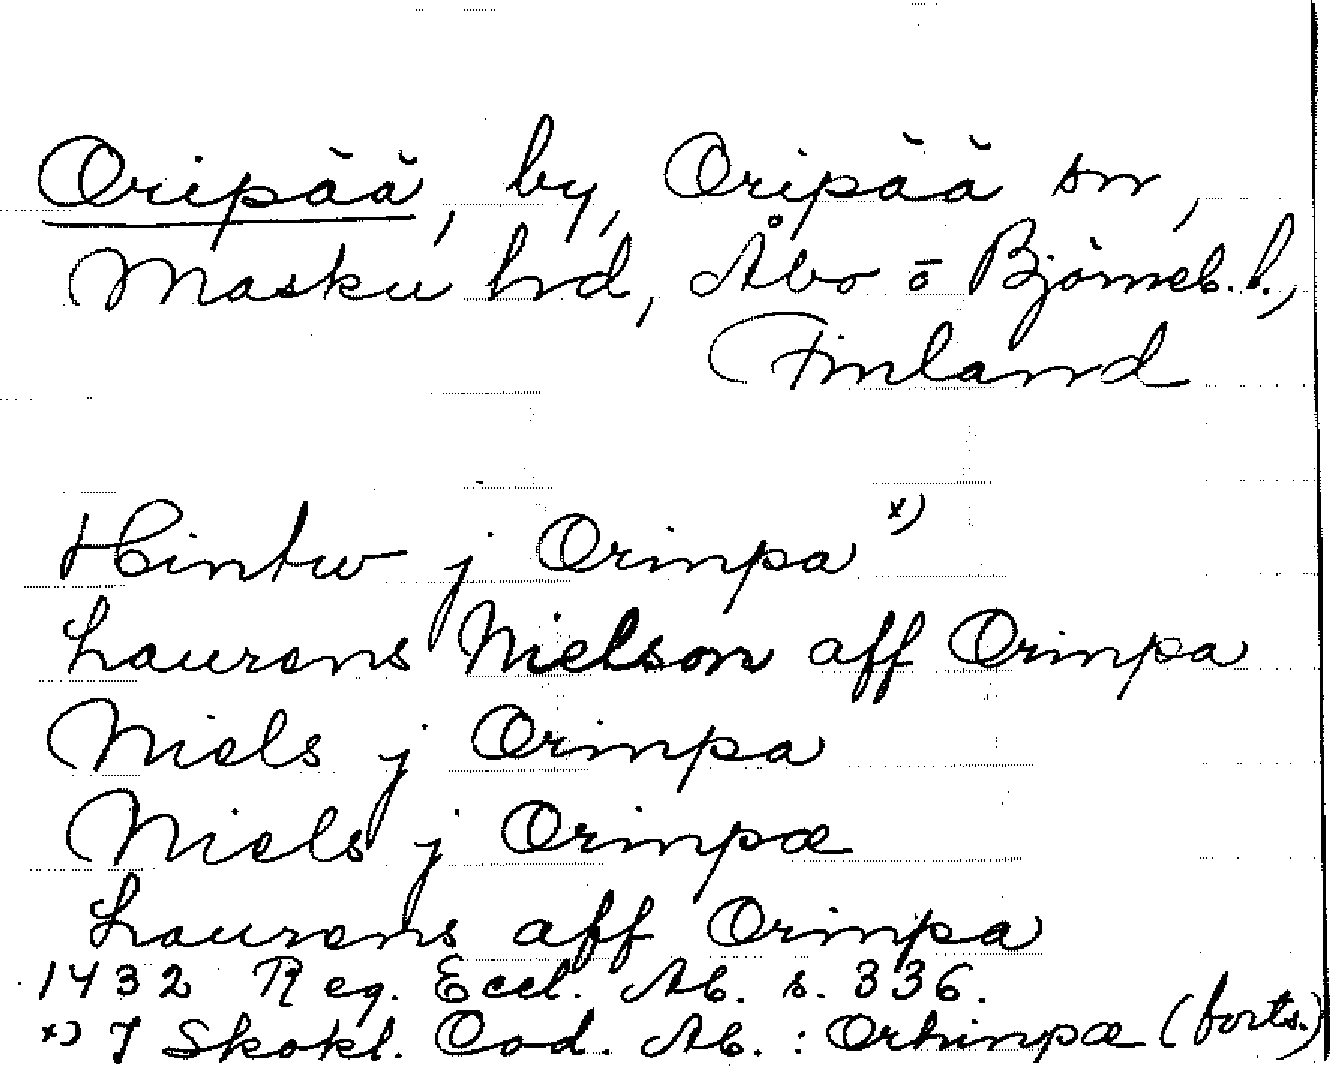 Oripää, by, Oripää sn,
Masku hd, Åbo o Björneb. l.,
Finland
Hintw j Orimpa x)
Laurens Nielson aff Orimpa
Niels j Orimpa
Niels j Orimpæ
Laurens aff Orimpa
1432 Reg. Eccl. Ab. s. 336.
x) I Skokl. Cod. Ab. : Orhimpæ (forts.)